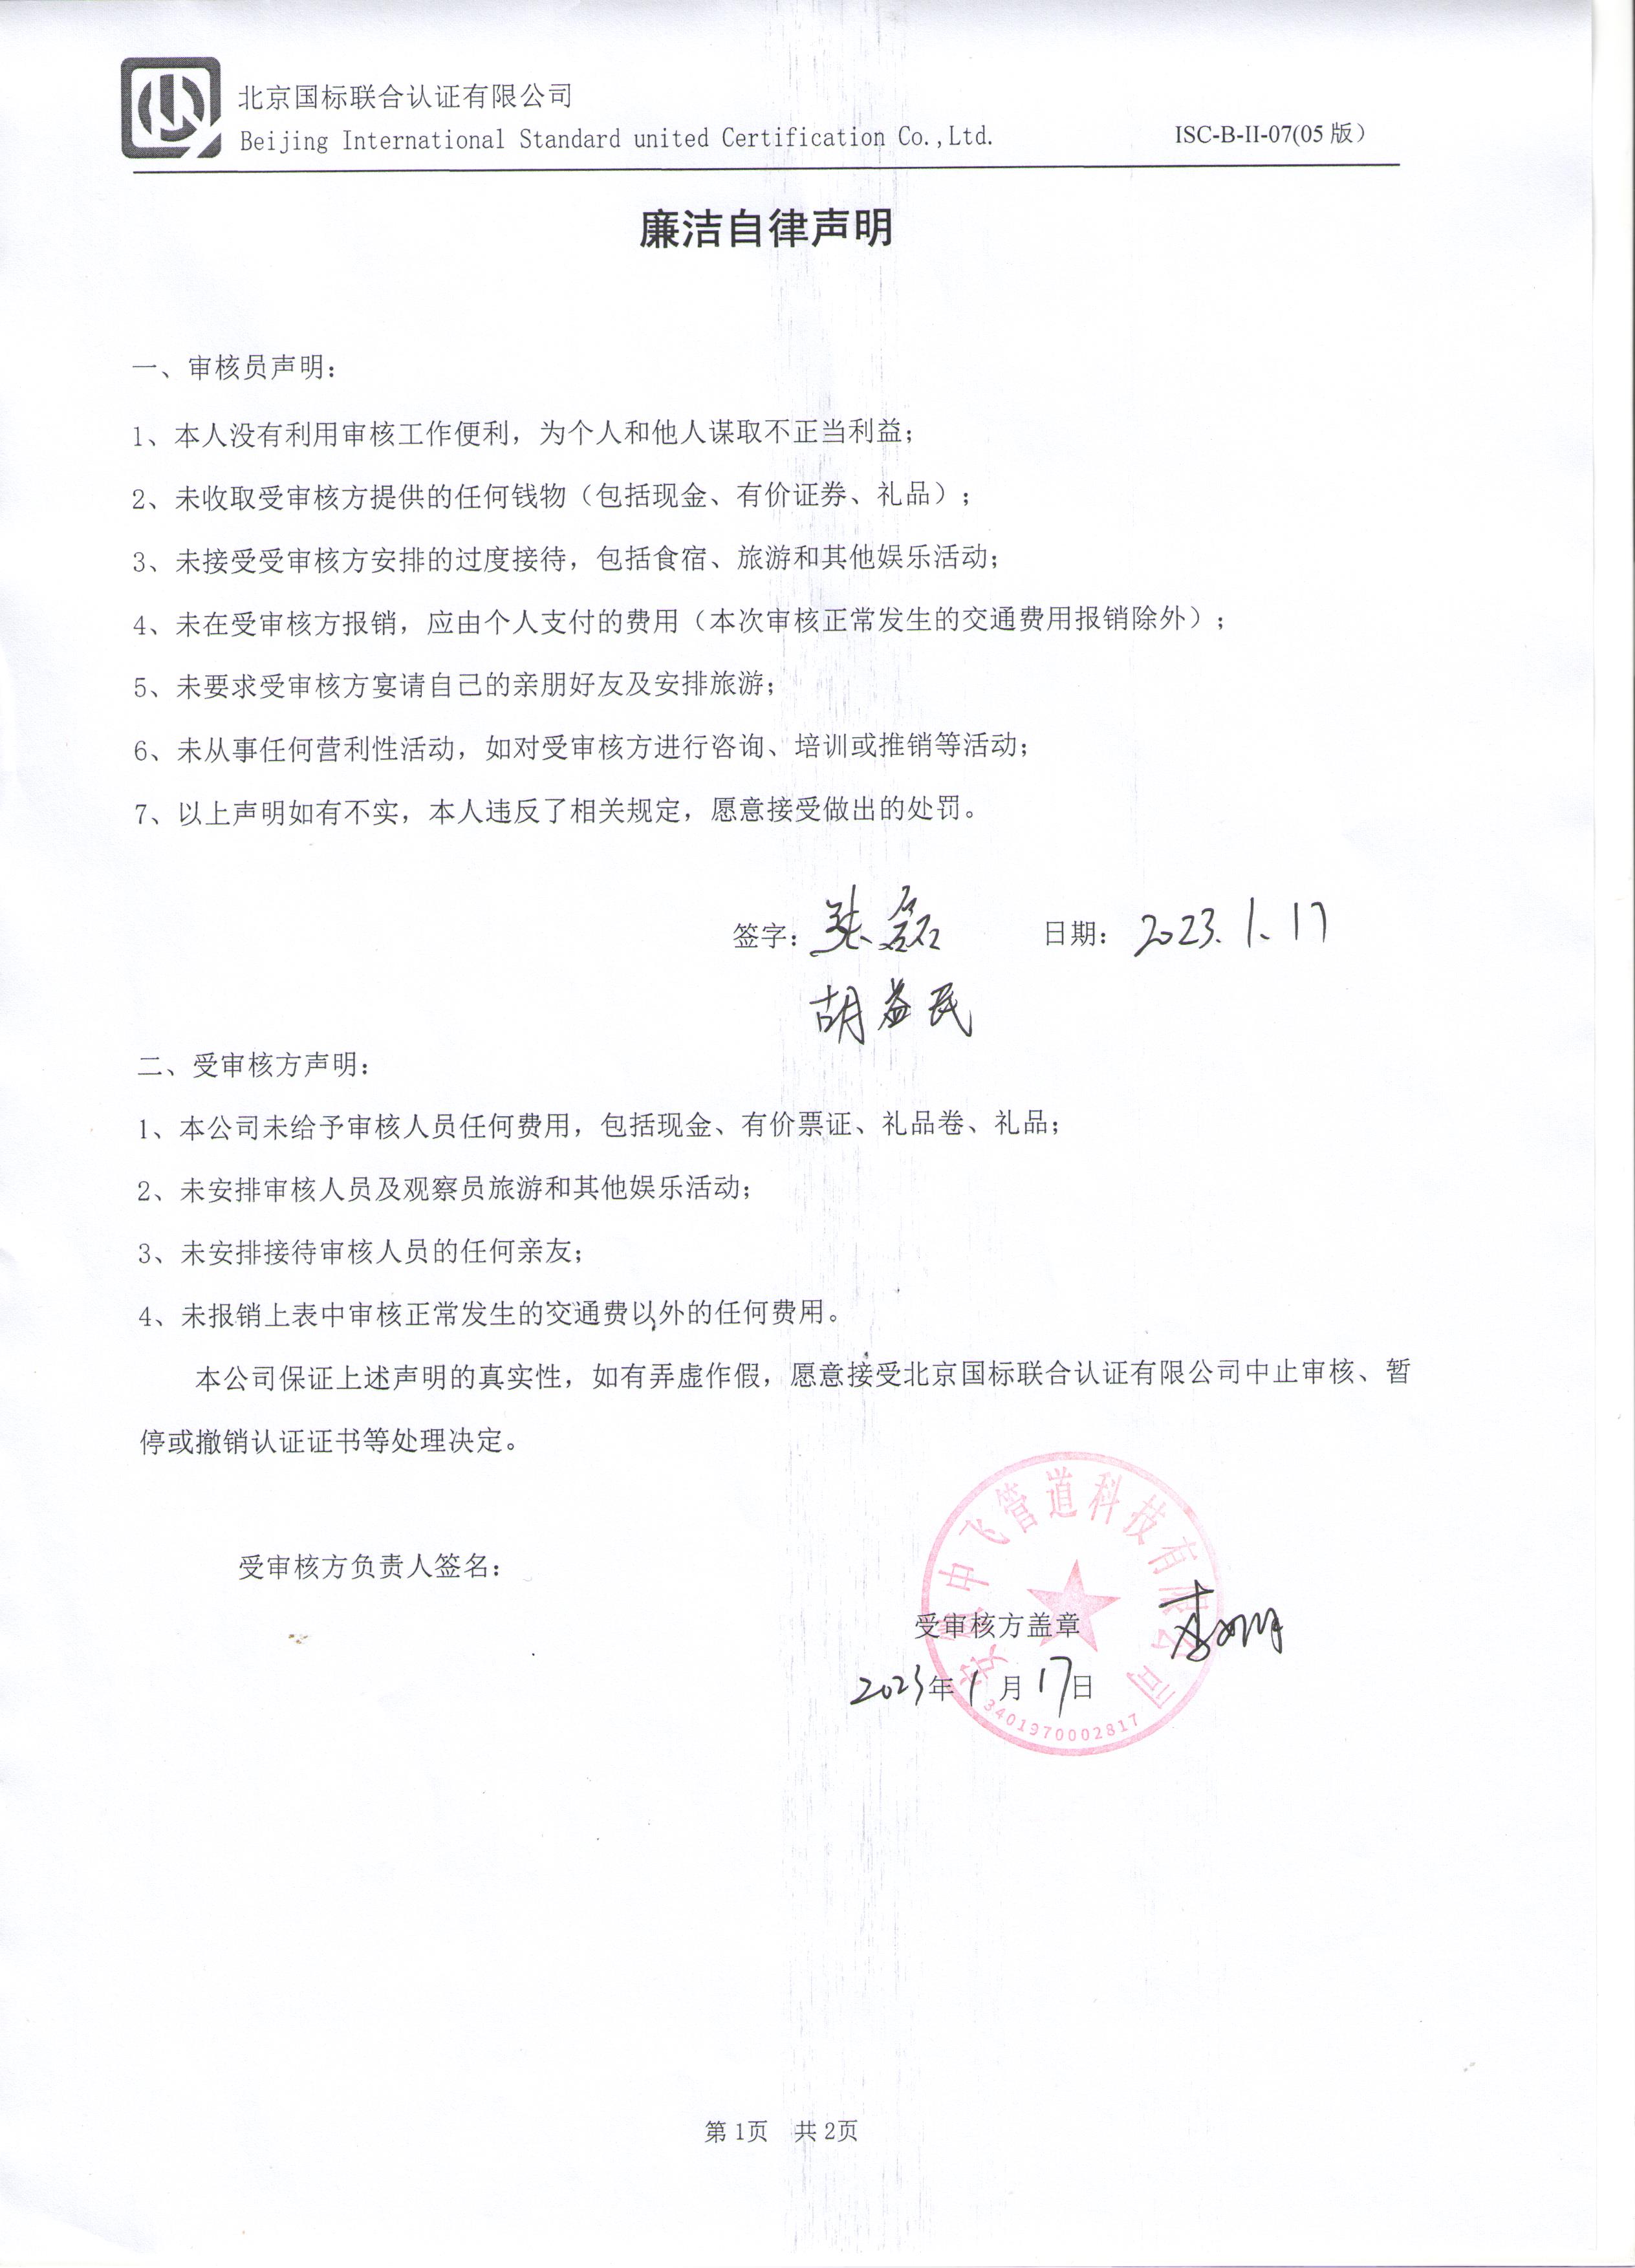 北京国标联合认证有限公司
Beijing International Standard united Certification Co.,Ltd.
ISC-B-II-07(05版)
廉洁自律声明
一、审核员声明：
1、本人没有利用审核工作便利，为个人和他人谋取不正当利益；
2、未收取受审核方提供的任何钱物（包括现金、有价证券、礼品）；
3、未接受受审核方安排的过度接待，包括食宿、旅游和其他娱乐活动；
4、未在受审核方报销，应由个人支付的费用（本次审核正常发生的交通费用报销除外）；
5、未要求受审核方宴请自己的亲朋好友及安排旅游；
6、未从事任何营利性活动，如对受审核方进行咨询、培训或推销等活动；
7、以上声明如有不实，本人违反了相关规定，愿意接受做出的处罚。
签字：张磊 日期：2023.1.17
胡益民
二、受审核方声明：
1、本公司未给予审核人员任何费用，包括现金、有价票证、礼品卷、礼品；
2、未安排审核人员及观察员旅游和其他娱乐活动；
3、未安排接待审核人员的任何亲友；
4、未报销上表中审核正常发生的交通费以外的任何费用。
本公司保证上述声明的真实性，如有弄虚作假，愿意接受北京国标联合认证有限公司中止审核、暂
停或撤销认证证书等处理决定。
安徽中飞管道科技有限公司
受审核方负责人签名：
受审核方盖章
2023年1月17日
3401970002817
第1页 共2页